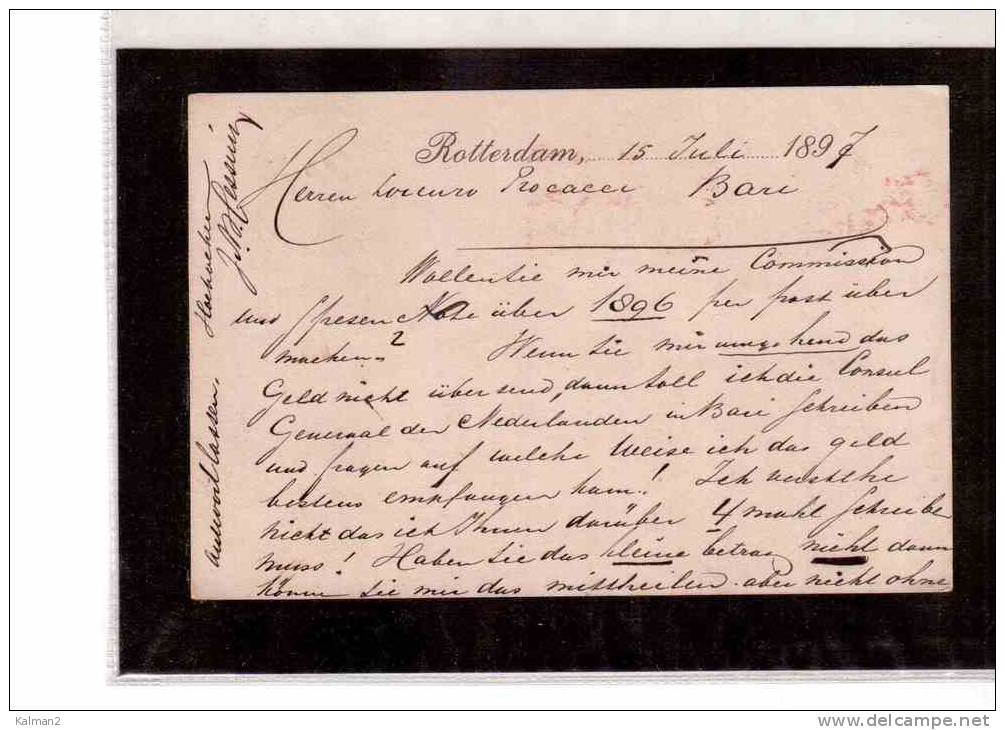 Rotterdam, 15 Juli 1897
Herren Bari
Wollen Sie mir meine Commission
und Spesen Note über 1896 per post über
machen?
Wenn Sie mir umgehend das
Geld nicht übersend, dann soll ich die Consul
General der Nederlanden in Bari schreiben
und fragen auf welche Weise ich das geld
bestens empfangen kann! Ich verstehe
nicht das ich Ihnen darüber 4 mahl schreibe
muss! Haben Sie das kleine betrag nicht dann
können Sie mir das mittheilen aber nicht ohne
antwort lassen.
Kalman2
www.delcampe.net